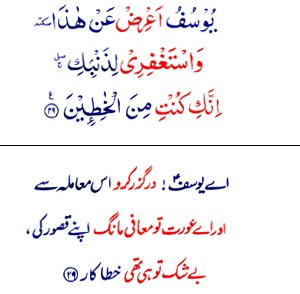 يُوْسُفُ اَعْرِضْ عَنْ هٰذَا سكتة
وَاسْتَغْفِرِيْ لِذَنْۢبِكِ ۖۚ
اِنَّكِ كُنْتِ مِنَ الْخٰطِـِٕيْنَ ﴿۲۹﴾ ع
اے یوسفؑ ! درگزر کرو اس معاملہ سے
اور اے عورت تو معافی مانگ اپنے قصور کی ،
بے شک تو ہی تھی خطا کار ﴿۲۹﴾